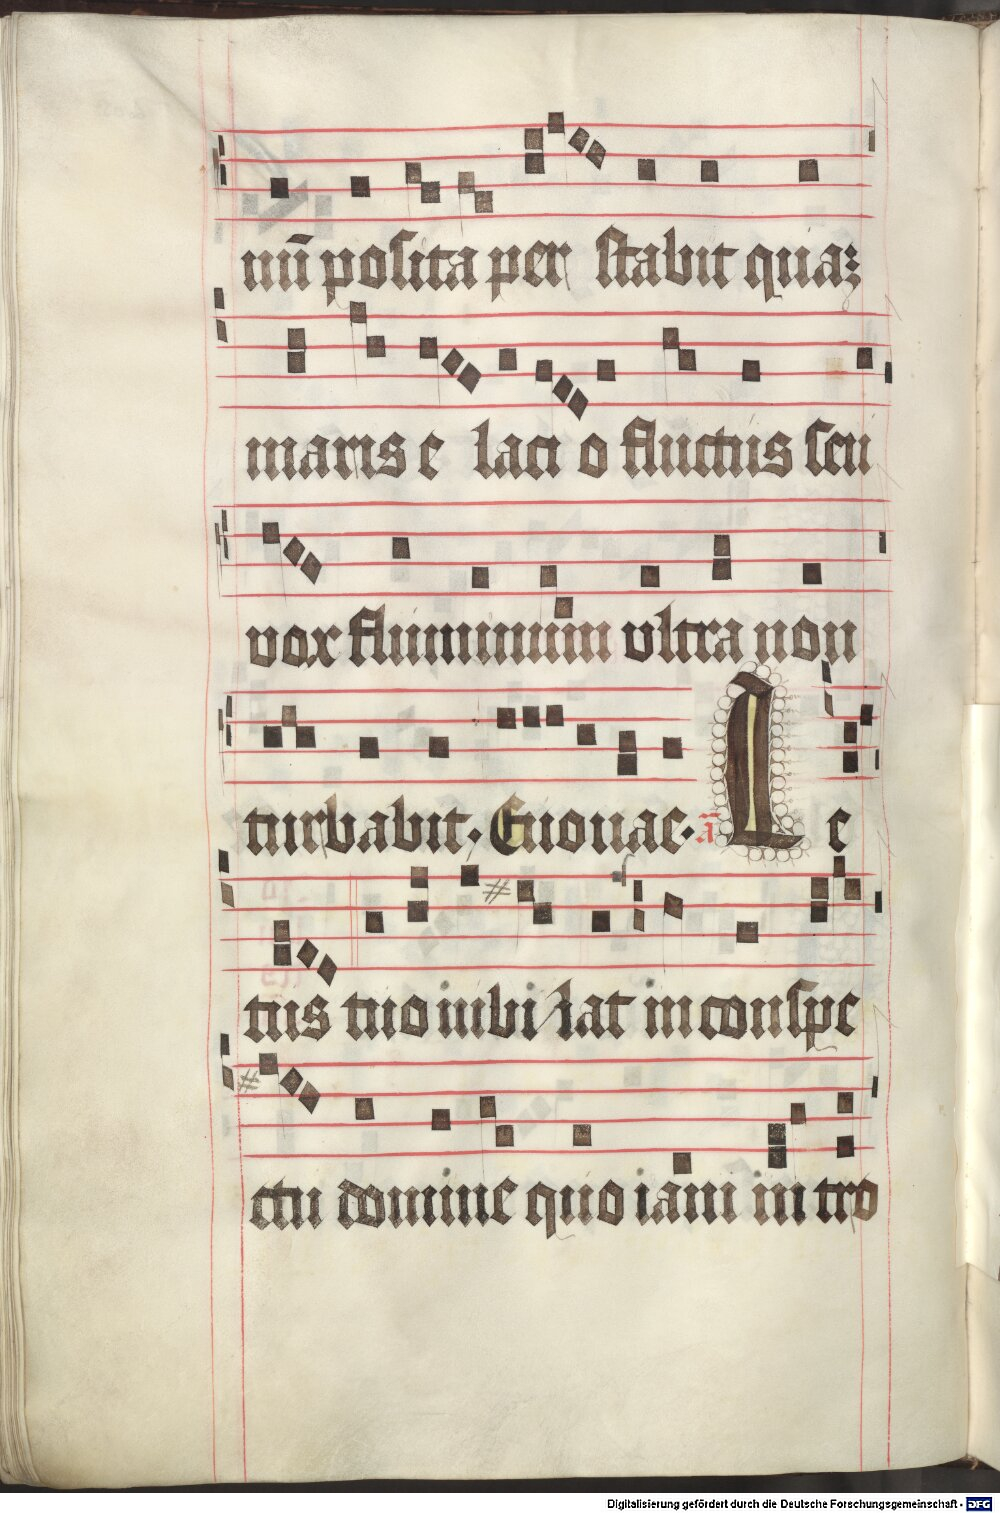 nū posita per stabit quaꝫ
maris e laci o fluctus seu
vox fluminum ultra non
turbabit. Euouae. a᷑ Le
tus tuo iubi lat in conspe
ctu domine quoniam in tro
Digitalisierung gefördert durch die Deutsche Forschungsgemeinschaft - DFG